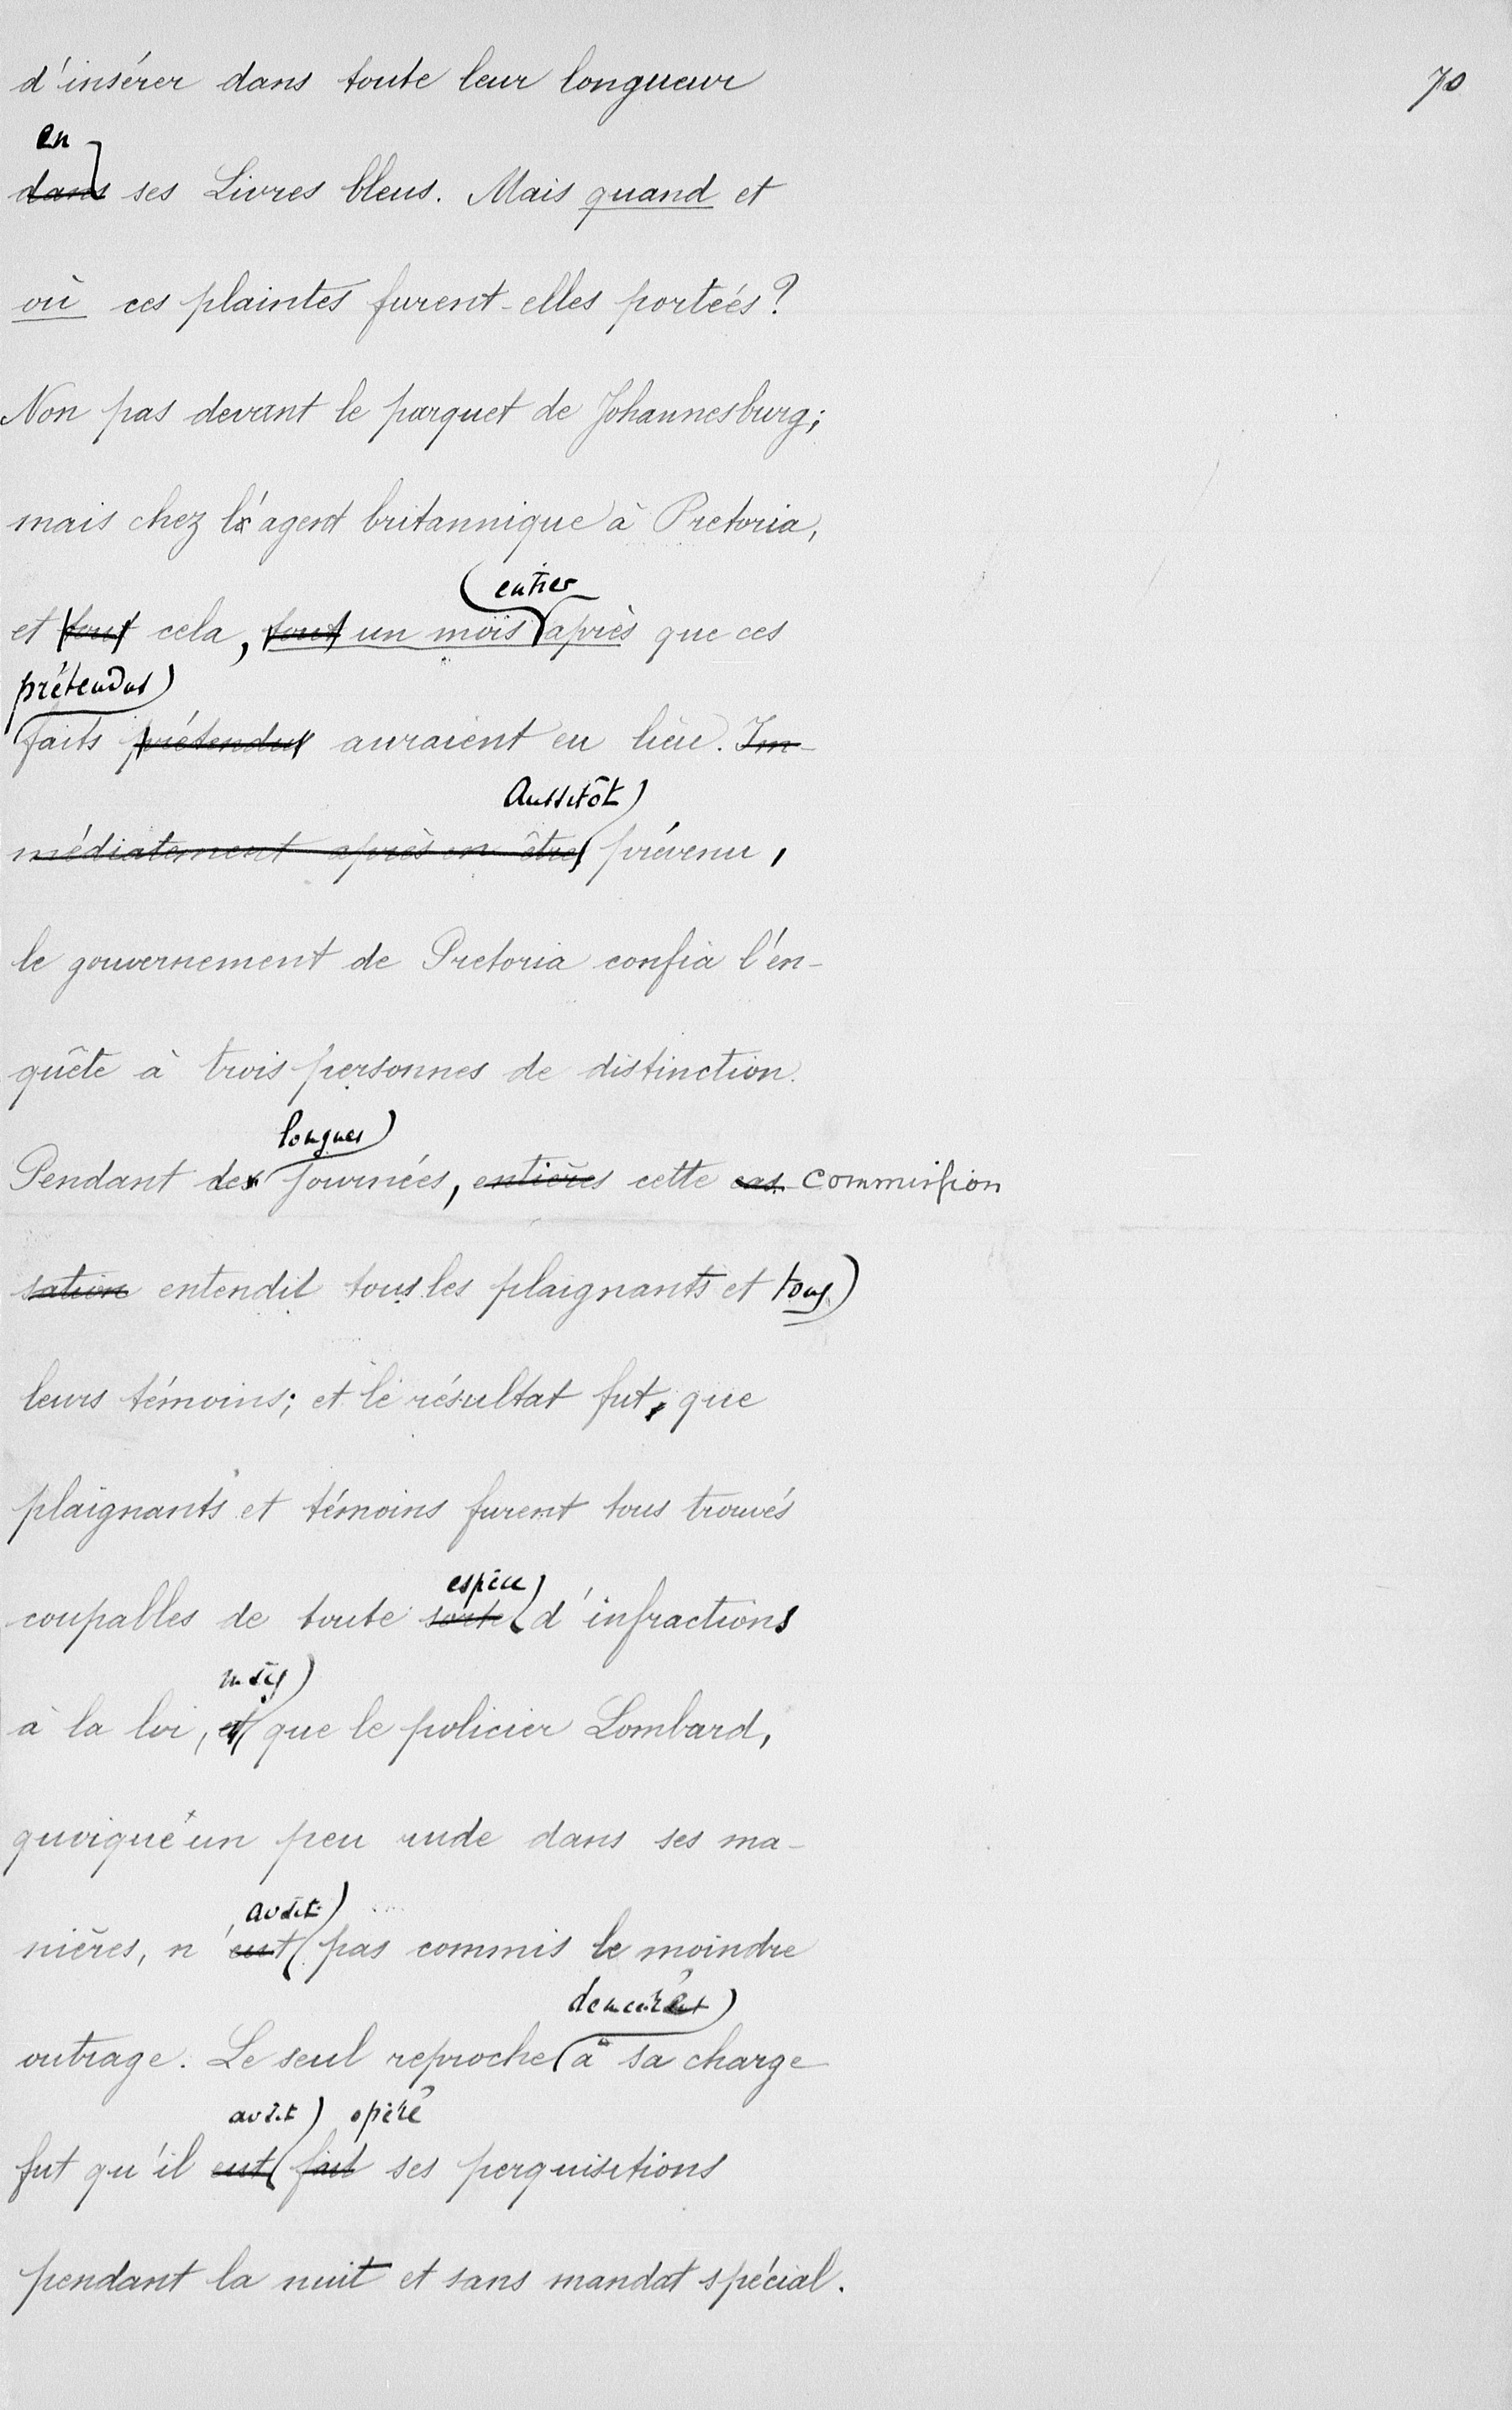 d'insérer dans toute leur longueur
70
en
dans ses Livres bleus. Mais quand et
où ces plaintes furent-elles portées?
Non pas devant le parquet de Johannesburg;
mais chez l'agent britannique à Pretoria,
entier
et tout cela, tout un mois après que ces
prétendus
faits prétendus auraient eu lieu. Im-
Aussitôt
médiatement après en être prévenu,
le gouvernement de Pretoria confia l'en-
quête à trois personnes de distinction.
longues
Pendant des journées, entières cette cas commission
sation entendit tous les plaignants et tous
leurs témoins; et le résultat fut, que
plaignants et témoins furent tous trouvés
espèce
coupables de toute sorte d'infractions
mais
à la loi, et que le policier Lombard,
quoique un peu rude dans ses ma-
avait
nières, n'eut pas commis le moindre
outrage. Le seul reproche à sa charge
avait opéré
fut qu'il eut fait ses perquisitions
pendant la nuit et sans mandat spécial.